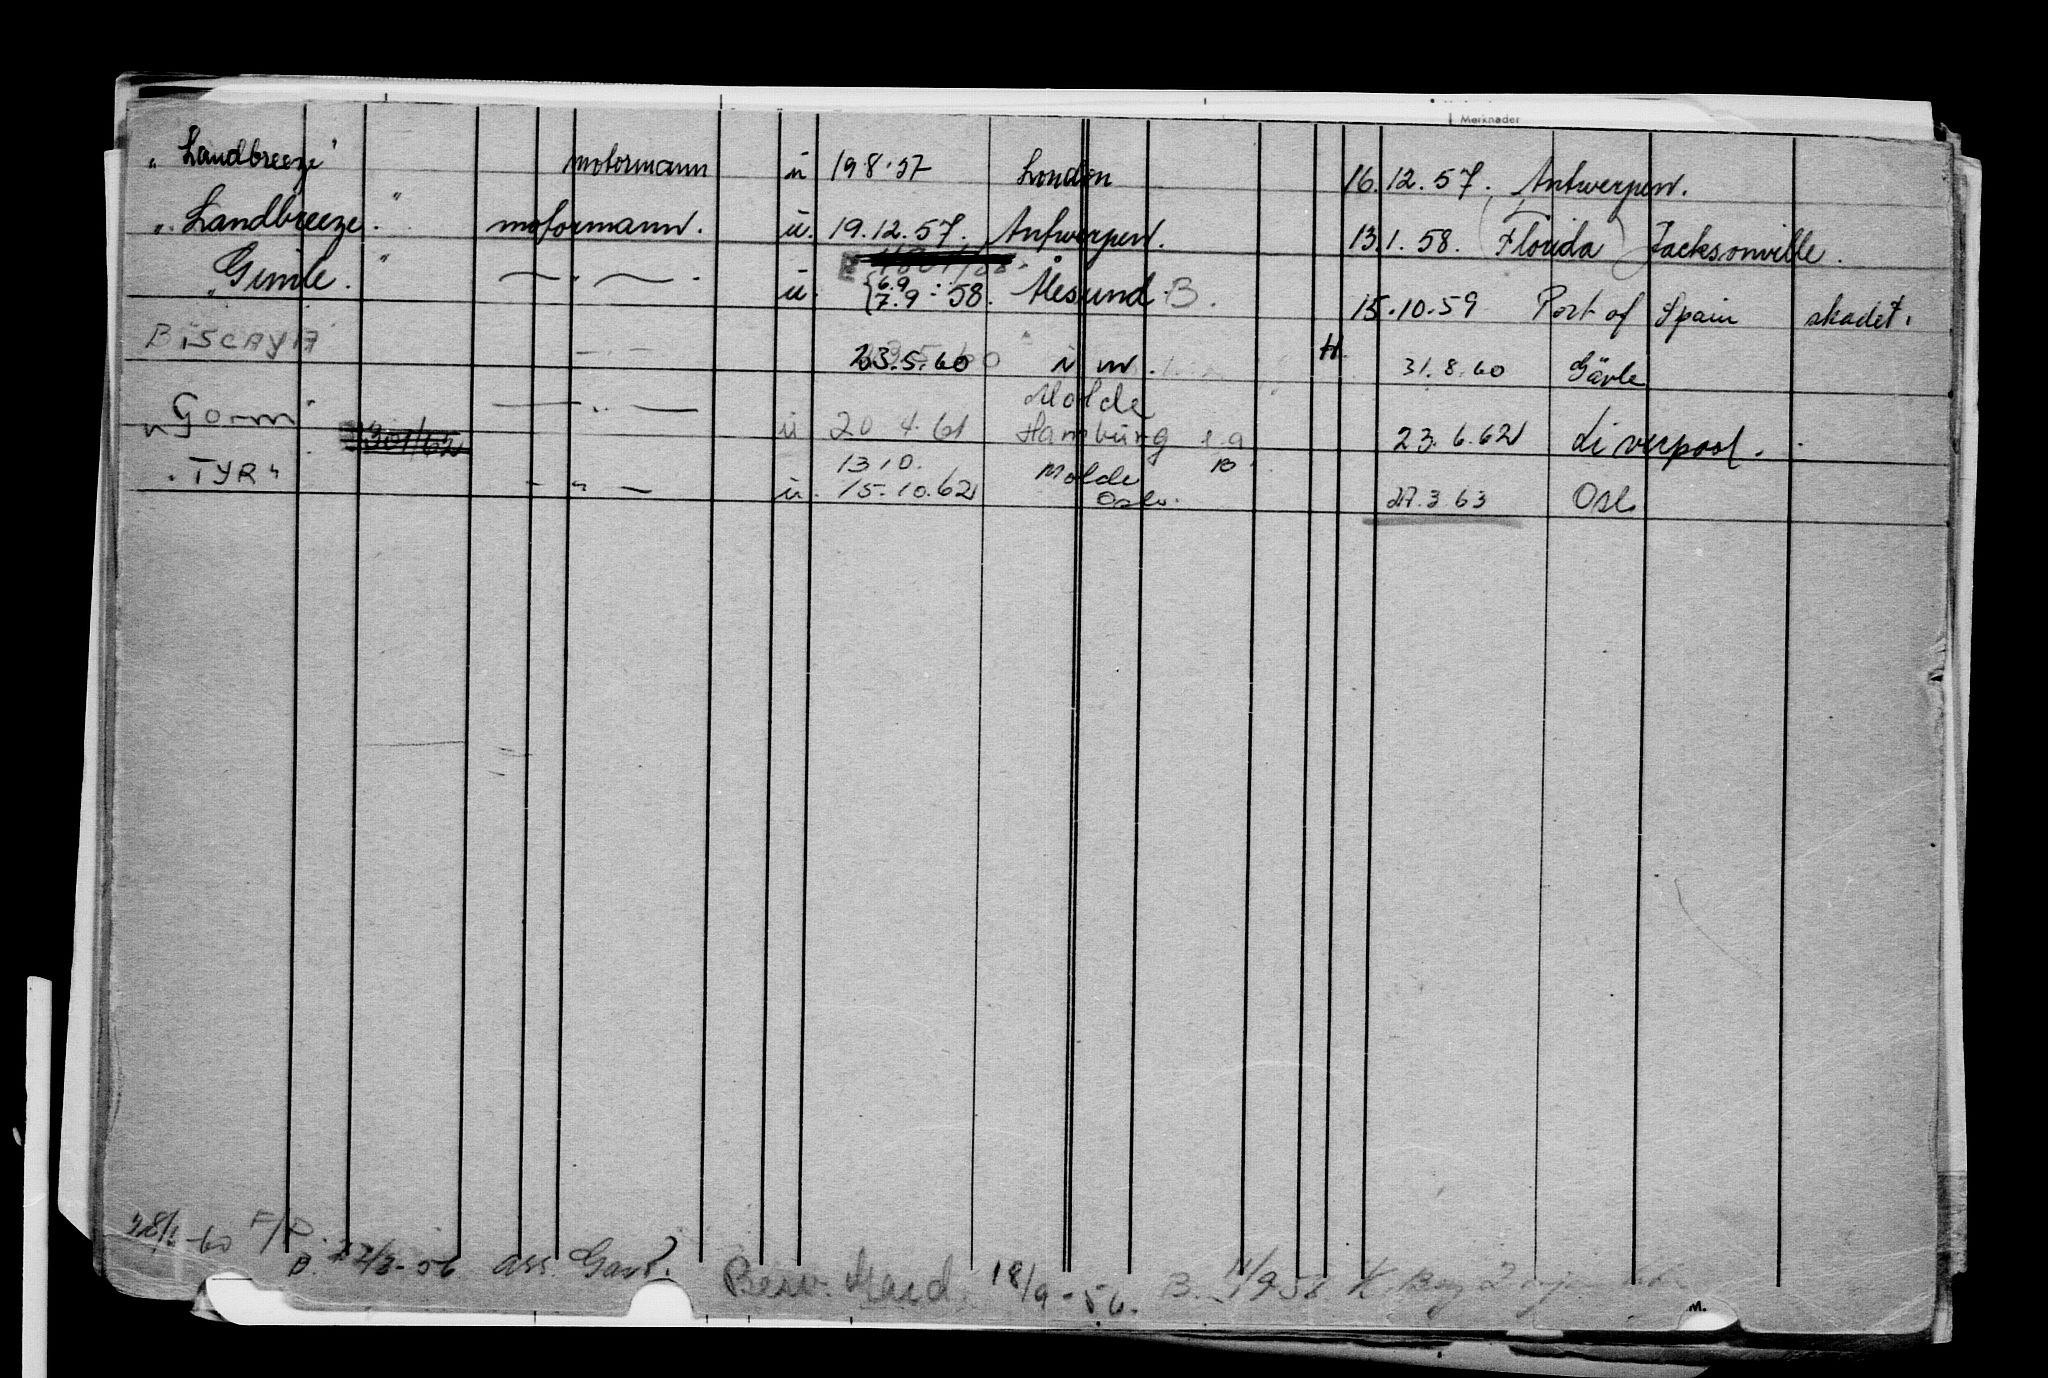 Merknader
"Landbreeze" motormann u 19 8.57 London 16.12.57. Antwerpen.
"Landbreeze." motormann. u. 19.12.57. Antwerpen. 13.1.58. (Florida) Jacksonville.
"Gimle." — " — . u. {6.9 7.9 - 58. Ålesund B. 15.10.59 Port of Spain skadet.
"BISCAYA" — " — 23.5.60 H 31.8.60 Gävle
Molde
"Gorm" — " — u 20.4.61 Hamburg 23.6.62 Liverpool.
13 10. Molde B
"TYR" — " — u. 15.10.62 Oslo. 27.3.63 Oslo
-60 F/P.
B. ass. Gard. Besv. Gard. 18/9-56. B.
M.